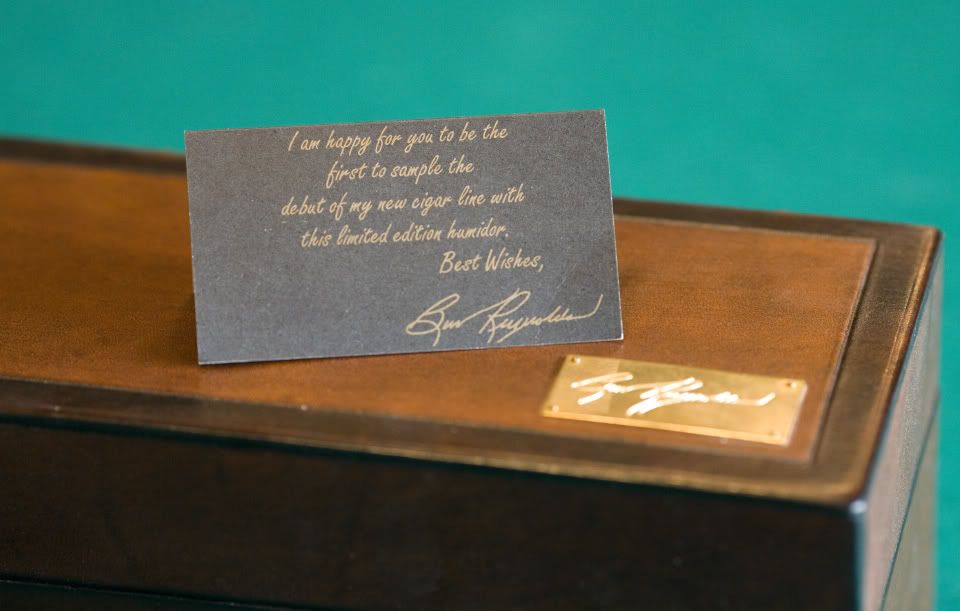 I am happy for you to be the
first to sample the
debut of my new cigar line with
this limited edition humidor.
Best Wishes,
Burt Reynolds